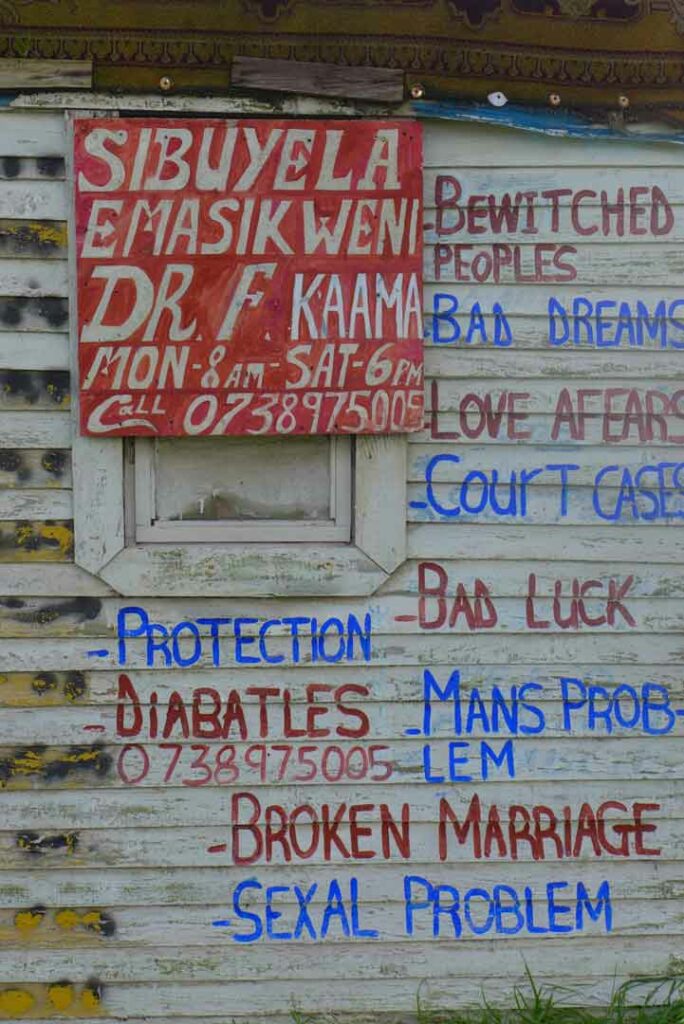 SIBUYELA
EMASIKWENI
DR. F. KAAMA
MON-8AM-SAT-6PM
CALL 0738975005
-BEWITCHED
PEOPLES
-BAD DREAMS
-LOVE AFFARS
-COURT CASES
-BAD LUCK
-PROTECTION
-DIABATLES
0738975005
-MANS PROB-
LEM
-BROKEN MARRIAGE
-SEXAL PROBLEM